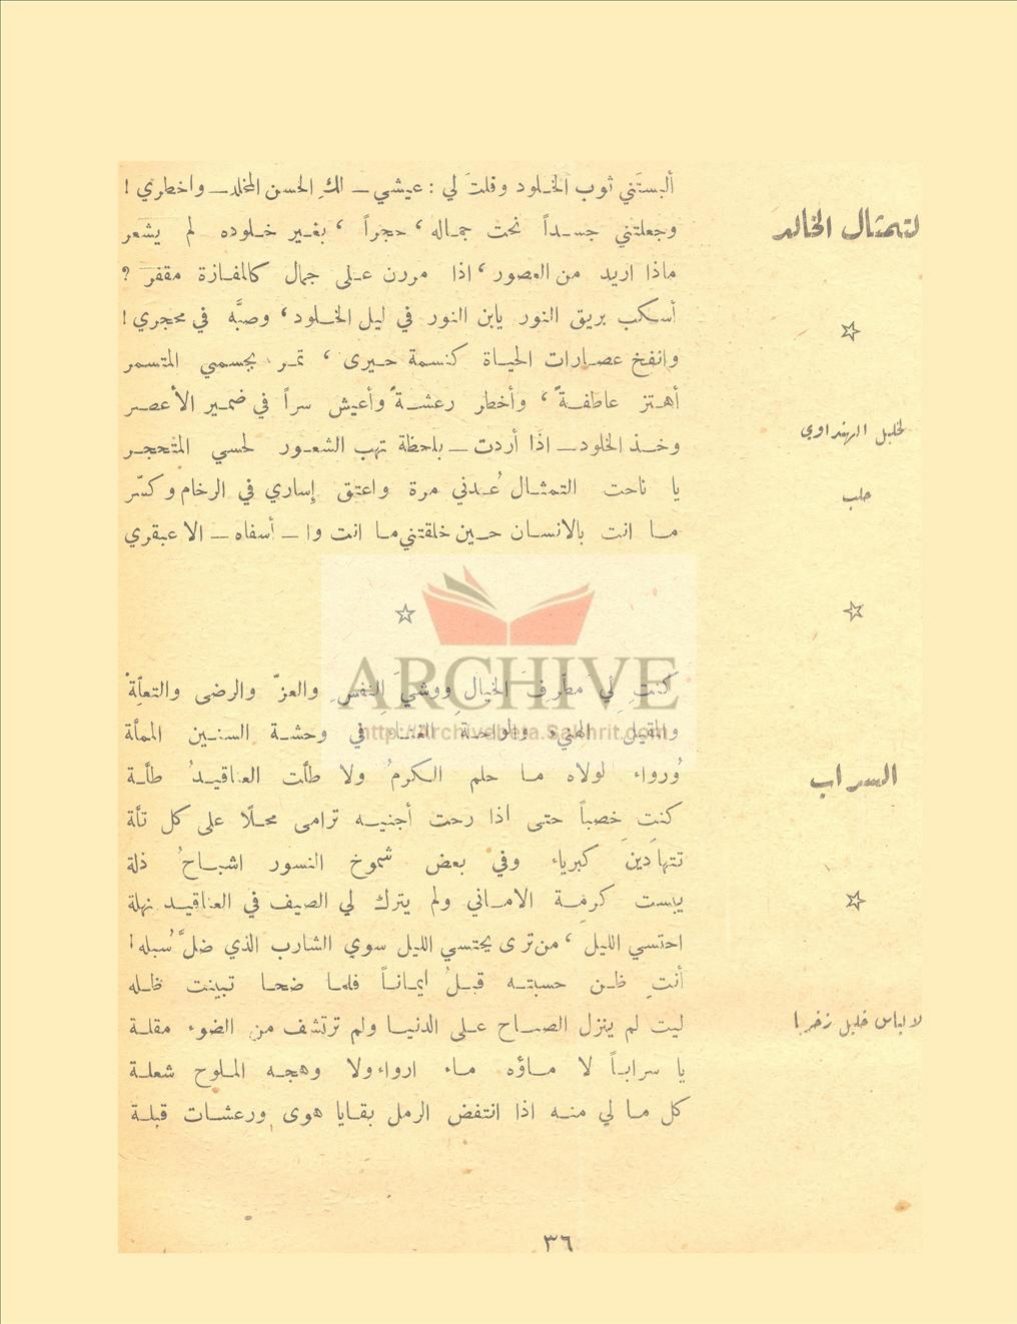 لتمثال الخالد
لخليل الهنداوي
حلب
ألبستَني ثوب الخلود وقلتَ لي : عيشي ــ لكِ الحسن المخلد ــ واخطري !
وجعلتني جسداً نحت جماله ، حجراً ، بغير خلوده لم يشعر
ماذا اريد من العصور ، اذا مررن على جمال كالمفازة مقفر ؟
أسكب بريق النور يابن النور في ليل الخلود ، وصبَّه في محجري !
وانفخ عصارات الحياة كنسمة حيرى ، تمر بجسمي المتسمر
أهتز عاطفةً ، وأخطار رعشةً وأعيش سراً في ضمير الأعصر
وخذ الخلود ــ اذا أردت ــ بلحظة تهب الشعور لحسي المتحجر
يا ناحت التمثال عُدني مرة واعتق إساري في الرخام وكسّر
ما انت بالانسان حين خلقتني ما انت وا ــ أسفاه ــ الا عبقري
ARCHIVE
http://Archivebeta.Sakhrit.com
السراب
لالياس خليل زخريا
كنتِ لي مطرفَ الخيالِ ووشيَ النفسِ والعزّ والرضى والتعلِّة
والمقيل الهنيء والواحة الغناء في وحشة السنين المملة
ورواء لولاه ما حلم الكرمُ ولا طلّت العناقيدُ طلّة
كنتِ خصباً حتى اذا رحت أجنيه ترامى محلًا على كل تلة
تتهادَين كبرياء وفي بعض شموخ النسور اشباحُ ذلة
يبست كرمة الاماني ولم يترك لي الصيف في العناقيد نهلة
احتسي الليل ، من ترى يحتسي الليل سوي الشارب الذي ضلَّ سُبله !
أنتِ ظن حسبته قبلُ ايماناً فلما ضحا تبينت ظله
ليت لم ينزل الصباح على الدنيا ولم ترتشف من الضوء مقلة
يا سراباً لا ماؤه ماء ارواء ولا وهجه الملوح شعلة
كل ما لي منه اذا انتفض الرمل بقايا هوى ورعشات قبلة
٣٦